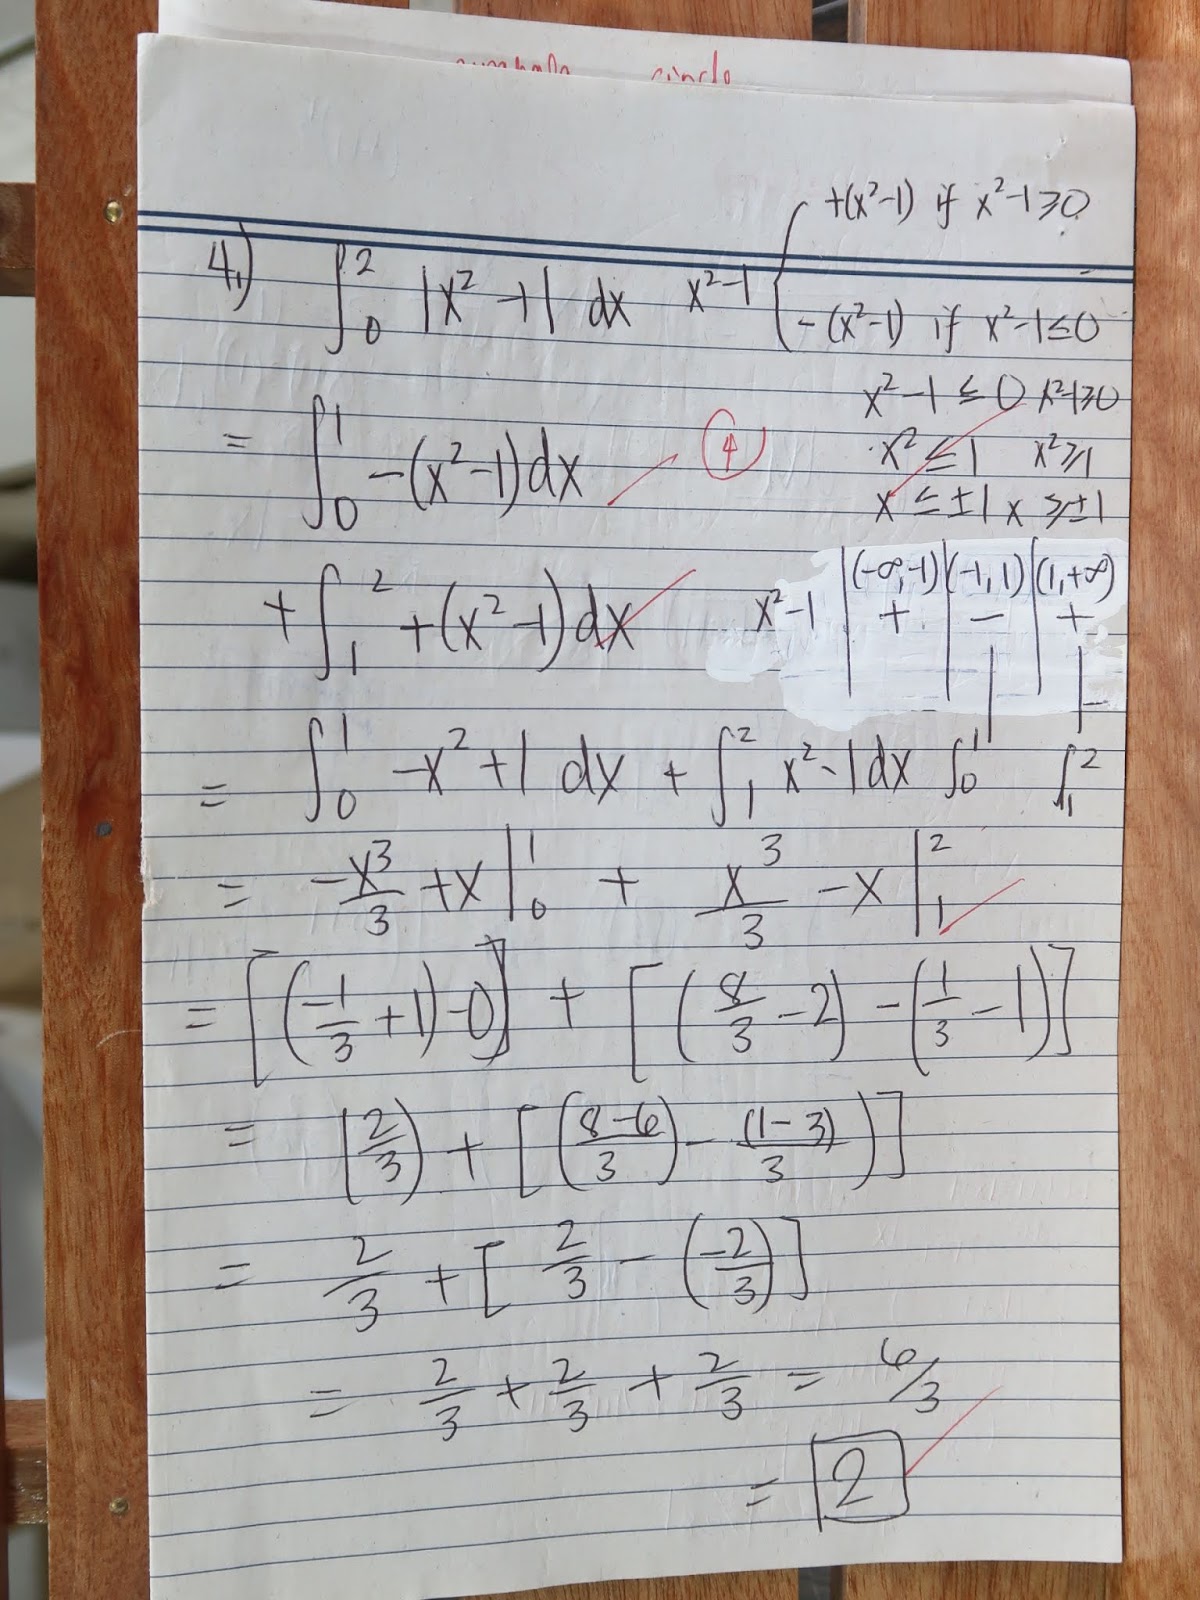 4.) ∫₀² |x²-1| dx x²-1 { +(x²-1) if x²-1≥0
-(x²-1) if x²-1≤0
x²-1≤0 x²-1≥0
= ∫₀¹ -(x²-1)dx 4 x²≤1 x²≥1
x≤±1 x≥±1
(-∞,-1) (-1,1) (1,+∞)
+ ∫₁² +(x²-1)dx x²-1 + - +
= ∫₀¹ -x²+1 dx + ∫₁² x²-1dx ∫₀¹ ∫₁²
= -x³/3 +x |₀¹ + x³/3 -x |₁²
= [(-1/3 +1)-0] + [(8/3 -2) -(1/3 -1)]
= (2/3) + [(8-6/3) - (1-3)/3)]
= 2/3 + [2/3 - (-2/3)]
= 2/3 + 2/3 + 2/3 = 6/3
= 2